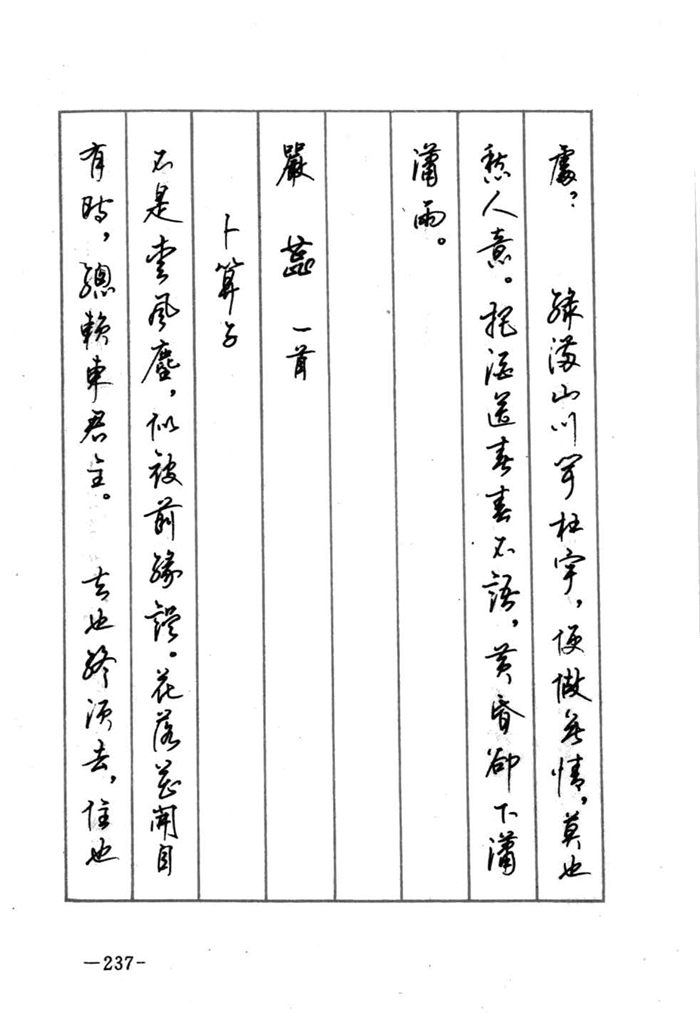 處？　綠滿山川聞杜宇，便做無情，莫也
愁人意。把酒送春春不語，黃昏卻下瀟
瀟雨。
嚴　蕊　一首
卜算子
不是愛風塵，似被前緣誤。花落花開自
有時，總賴東君主。　去也終須去，住也
—237-